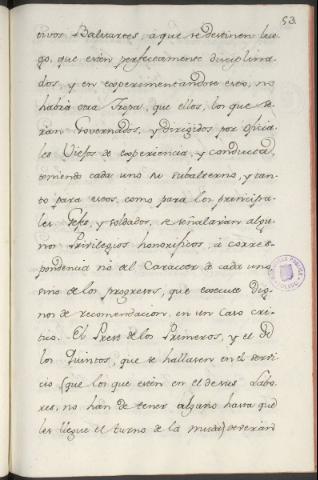 53
tivos Baluartes, a que se destinen lue-
go, que estèn perfectamente disciplina-
dos, y en experimentandose esto, no
habrà otra Tropa, que ellos, los que se-
ràn Governados, y dirigidos por oficia-
les Viejos de experiencia, y conducta,
teniendo cada uno su subalterno, y tan-
to para estos, como para los principa-
les Gefes, y soldados, se señalaràn algu-
nos Privilegios honorificos, à corres-
pondencia no del Caracter de cada uno
sino de los progresos, que execute Dig-
nos de recomendacion, en un Caso cri-
tico. El Prest de los Primeros, y el de
los Quintos, que se hallasen en el servi-
cio (que los que estèn en el de sus Labo-
res, no han de tener alguno hasta que
les llegue el turno de la muda) deveràn